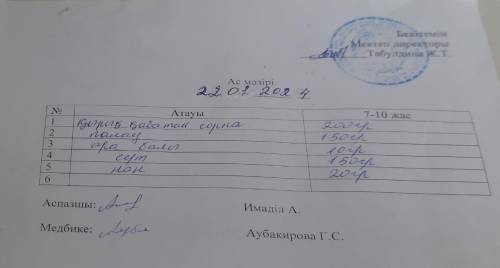 Бекітемін
Мектеп директоры
Табулдина Ж.Т.
Ас мәзірі
22 01 2024
№ Атауы 7-10 жас
1 қырық қабаттан сорпа 200гр
2 палау 150гр
3 ара балы 10гр
4 сүт 150гр
5 нан 20гр
6
Аспазшы: Имаділ А.
Медбике: Аубакирова Г.С.